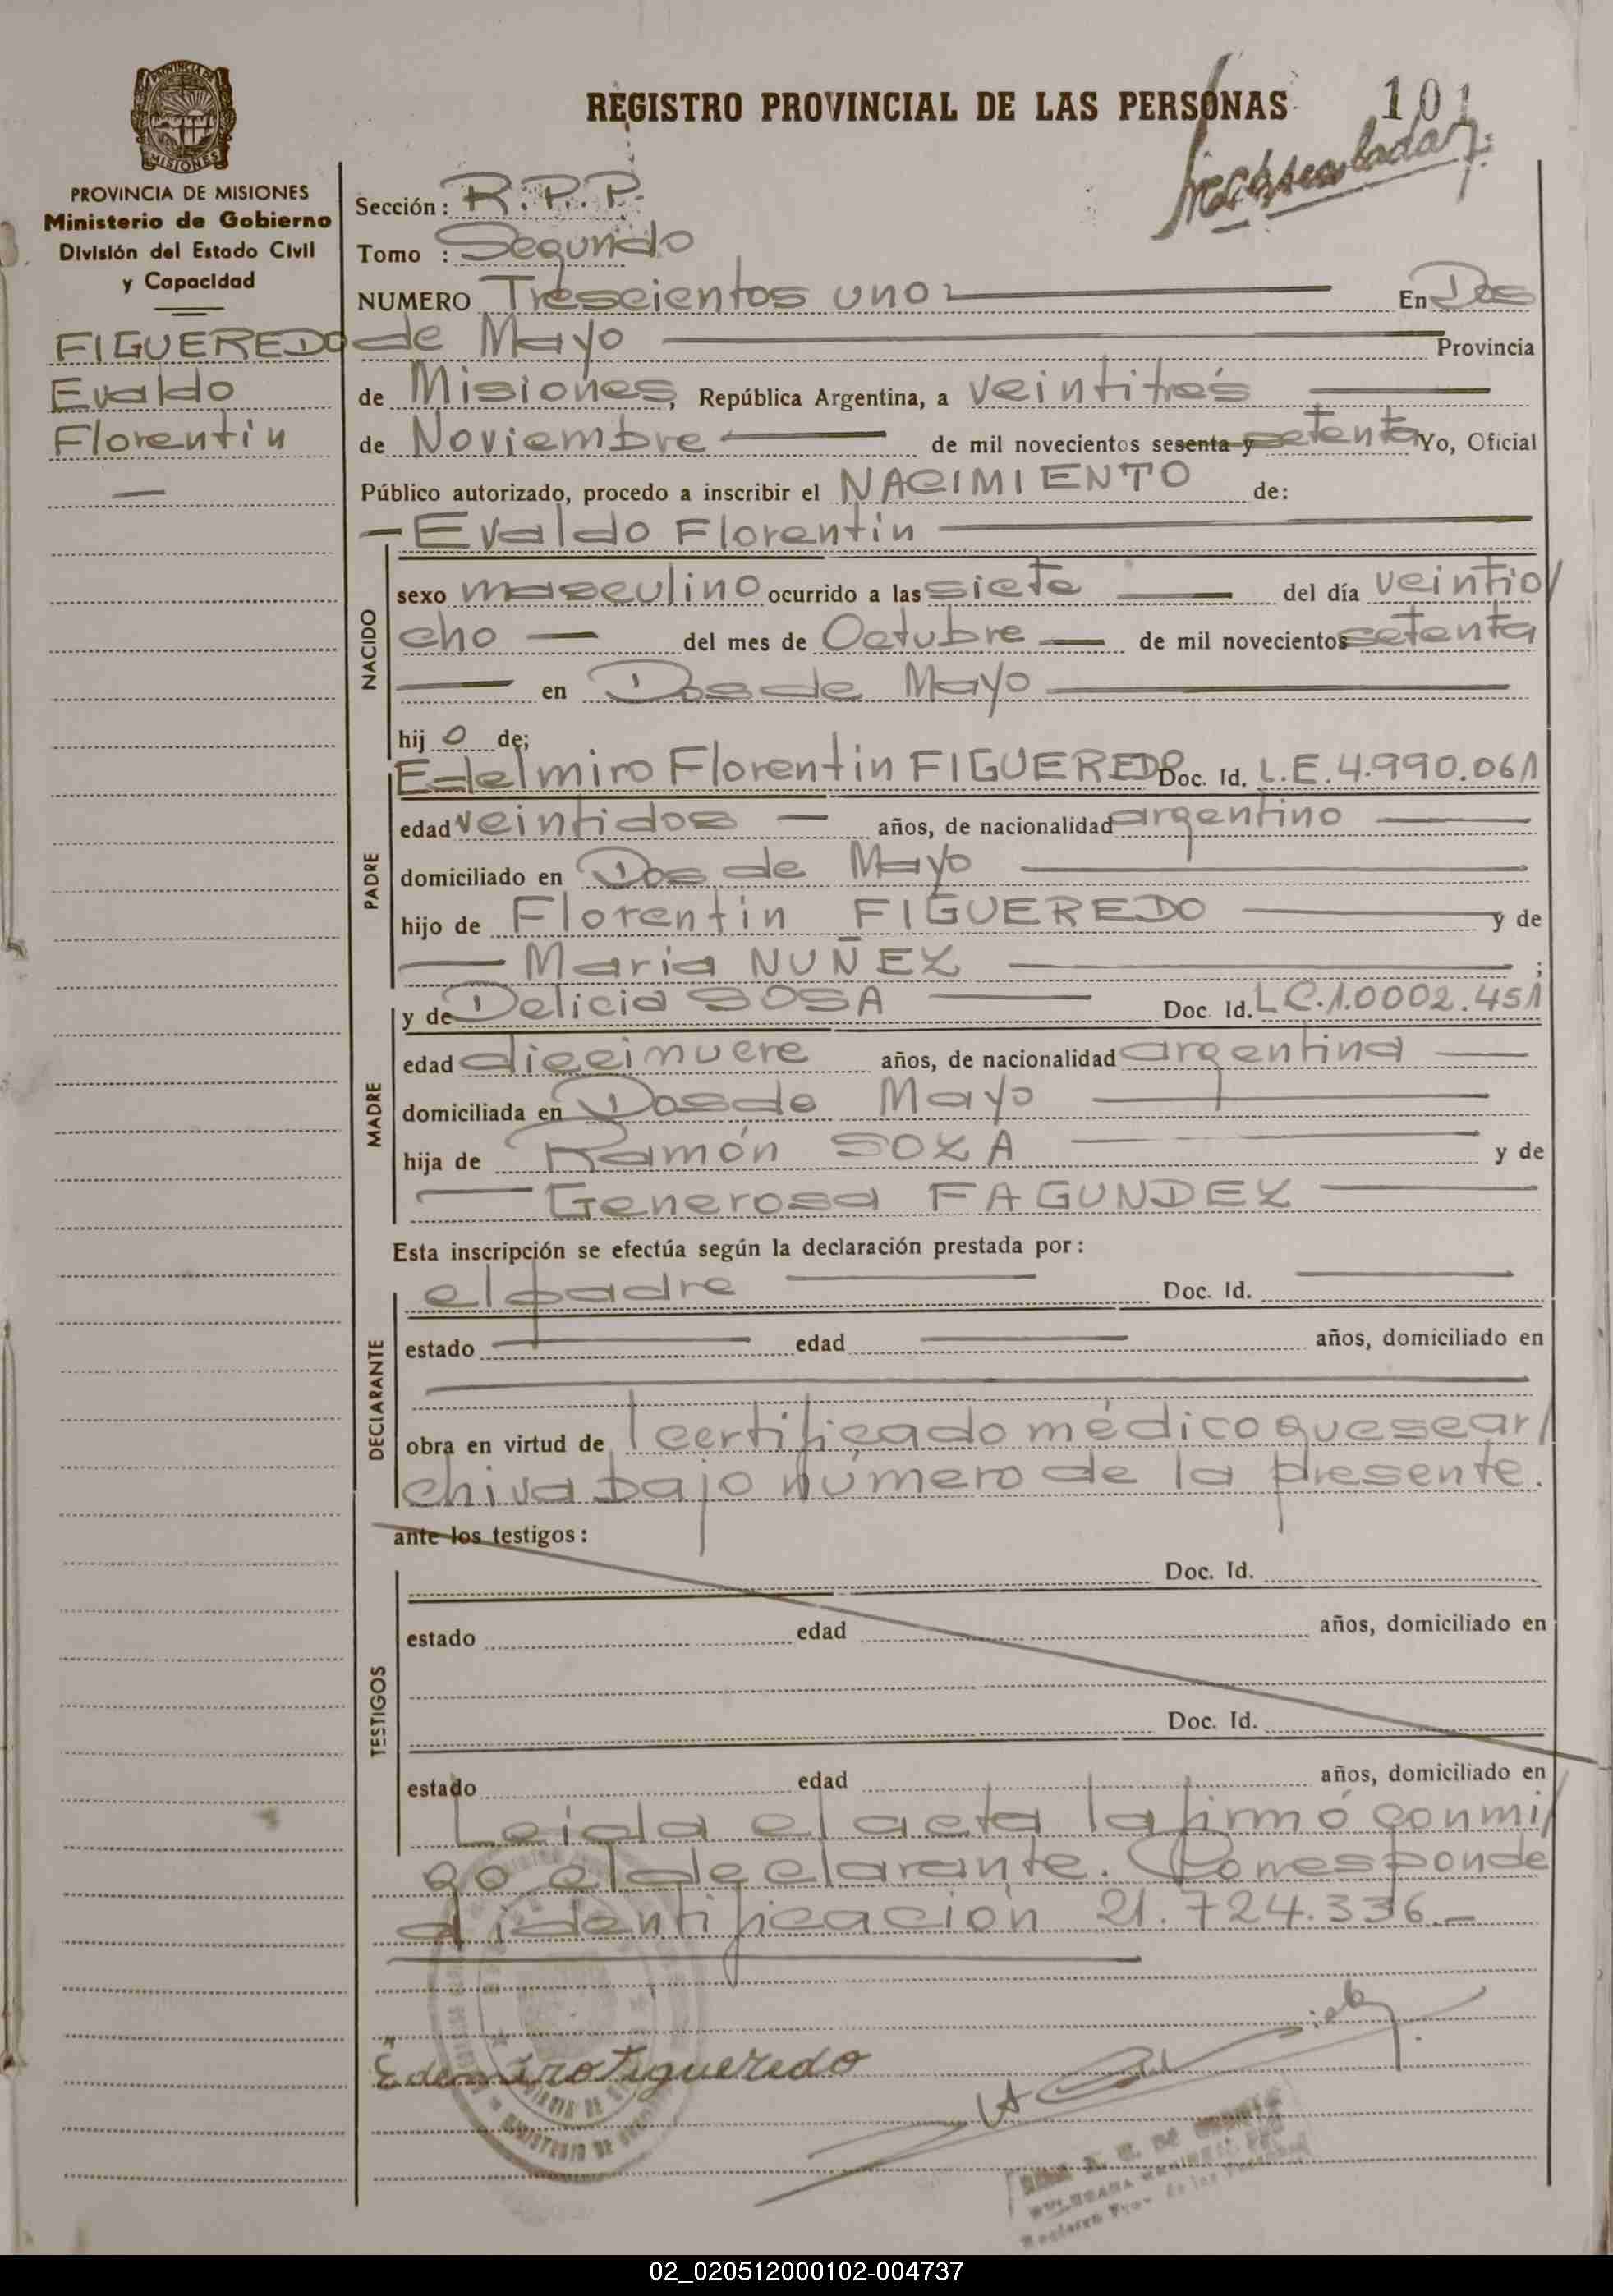 REGISTRO PROVINCIAL DE LAS PERSONAS
101
PROVINCIA DE MISIONES
PROVINCIA DE MISIONES
Ministerio de Gobierno
División del Estado Civil
y Capacidad
FIGUEREDO
Evaldo
Florentin
Sección: R.P.P.
Tomo : Segundo
NUMERO Trescientos uno En Dos
de Mayo Provincia
de Misiones, República Argentina, a veintitrés
de Noviembre de mil novecientos sesenta y setenta Yo, Oficial
Público autorizado, procedo a inscribir el NACIMIENTO de:
— Evaldo Florentin
NACIDO
sexo masculino ocurrido a las siete del día veintio/
cho — del mes de Octubre — de mil novecientos setenta
— en Dos de Mayo
hijo de;
PADRE
Edelmiro Florentin FIGUEREDO Doc. Id. L.E.4.990.061
edad veintidos — años, de nacionalidad argentino
domiciliado en Dos de Mayo
hijo de Florentin FIGUEREDO y de
— Maria NUÑEZ — ;
MADRE
y de Delicia SOSA — Doc. Id. LC.1.0002.451
edad diecinueve años, de nacionalidad argentina —
domiciliada en Dos de Mayo
hija de Ramón SOZA y de
— Generosa FAGUNDEZ —
Esta inscripción se efectúa según la declaración prestada por:
DECLARANTE
el padre — Doc. Id. —
estado — edad — años, domiciliado en
obra en virtud de l certificado médico que se ar/
chiva bajo número de la presente.
ante los testigos:
TESTIGOS
Doc. Id.
estado edad años, domiciliado en
Doc. Id.
estado edad años, domiciliado en
Leida el acta la firmó conmi/
go el declarante. Corresponde
a identificación 21.724.336.—
Edemiro Figueredo
02_020512000102-004737